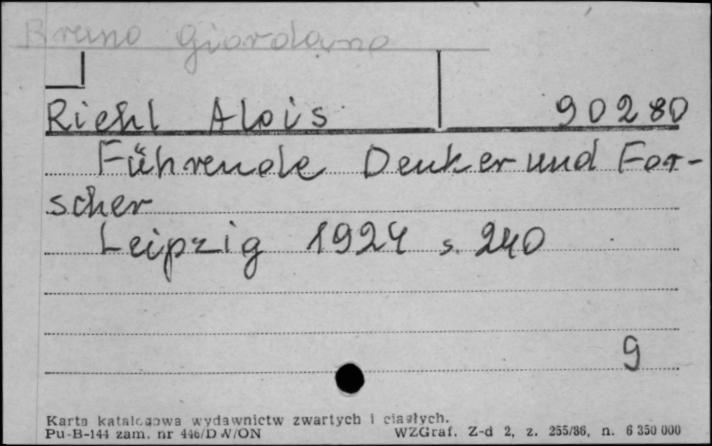 Bruno Giordano
Riehl Alois 90280
Führende Denker und For-
scher
Leipzig 1924 s. 240
9
Karta katalogowa wydawnictw zwartych i ciągłych.
Pu-B-144 zam. nr 446/DW/ON WZGraf. Z-d 2, z. 255/86, n. 6 350 000